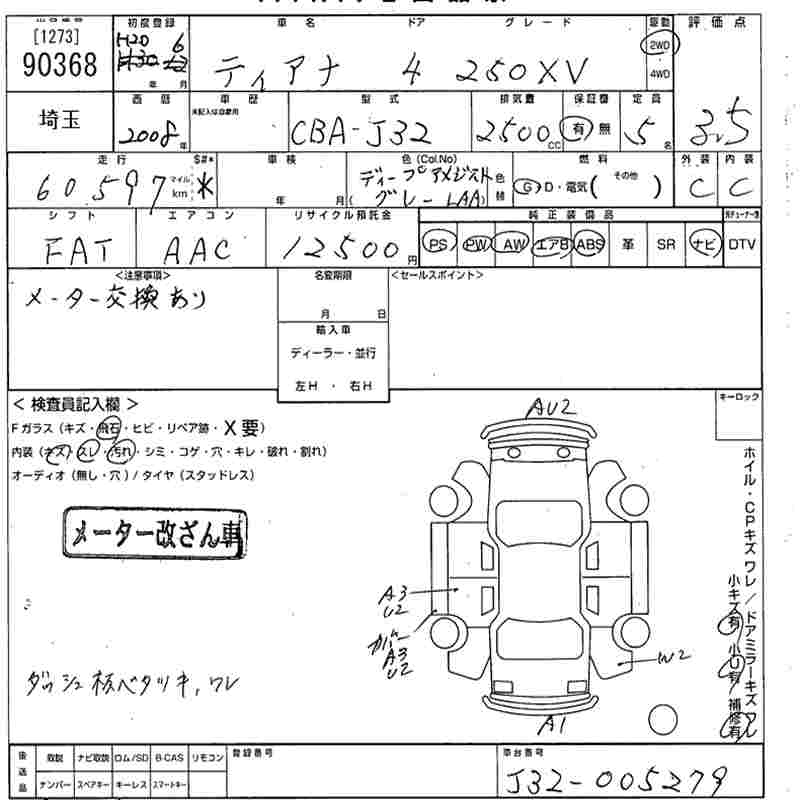 [1273]
90368
初度登録
H20 6
年 月
車名 ドア グレード
ティアナ 4 250XV
駆動
2WD
4WD
評価点
3.5
埼玉
西暦
2008年
車歴
未記入は自家用
型式
CBA-J32
排気量
2500cc
保証書
有 無
定員
5名
走行
60,597
マイル
km
S#*
*
車検
年 月
色(Col.No)
ディープアメジスト
グレー LAA)
色替
燃料
G・D・電気( その他 )
外装
C
内装
C
シフト
FAT
エアコン
AAC
リサイクル預託金
12500円
純正装備品
PS PW AW エアB ABS 革 SR ナビ DTV
<注意事項>
メーター交換あり
名変期限
月 日
輸入車
ディーラー・並行
左H ・ 右H
<セールスポイント>
＜ 検査員記入欄 ＞
Fガラス (キズ・飛石・ヒビ・リペア跡・X要)
内装 (キズ・スレ・汚れ・シミ・コゲ・穴・キレ・破れ・割れ)
オーディオ (無し・穴) / タイヤ (スタッドレス)
キーロック
メーター改ざん車
AU2
A3
U2
カバー
A3
U2
W2
A1
ダッシュ板ベタツキ,ワレ
ホイル・CPキズワレ/ドアミラーキズワレ
小キズ有 小U有 補修有
後送品
取説 ナビ取説 ロム/SD B-CAS リモコン
ナンバー スペアキー キーレス スマートキー
登録番号
車台番号
J32-005279